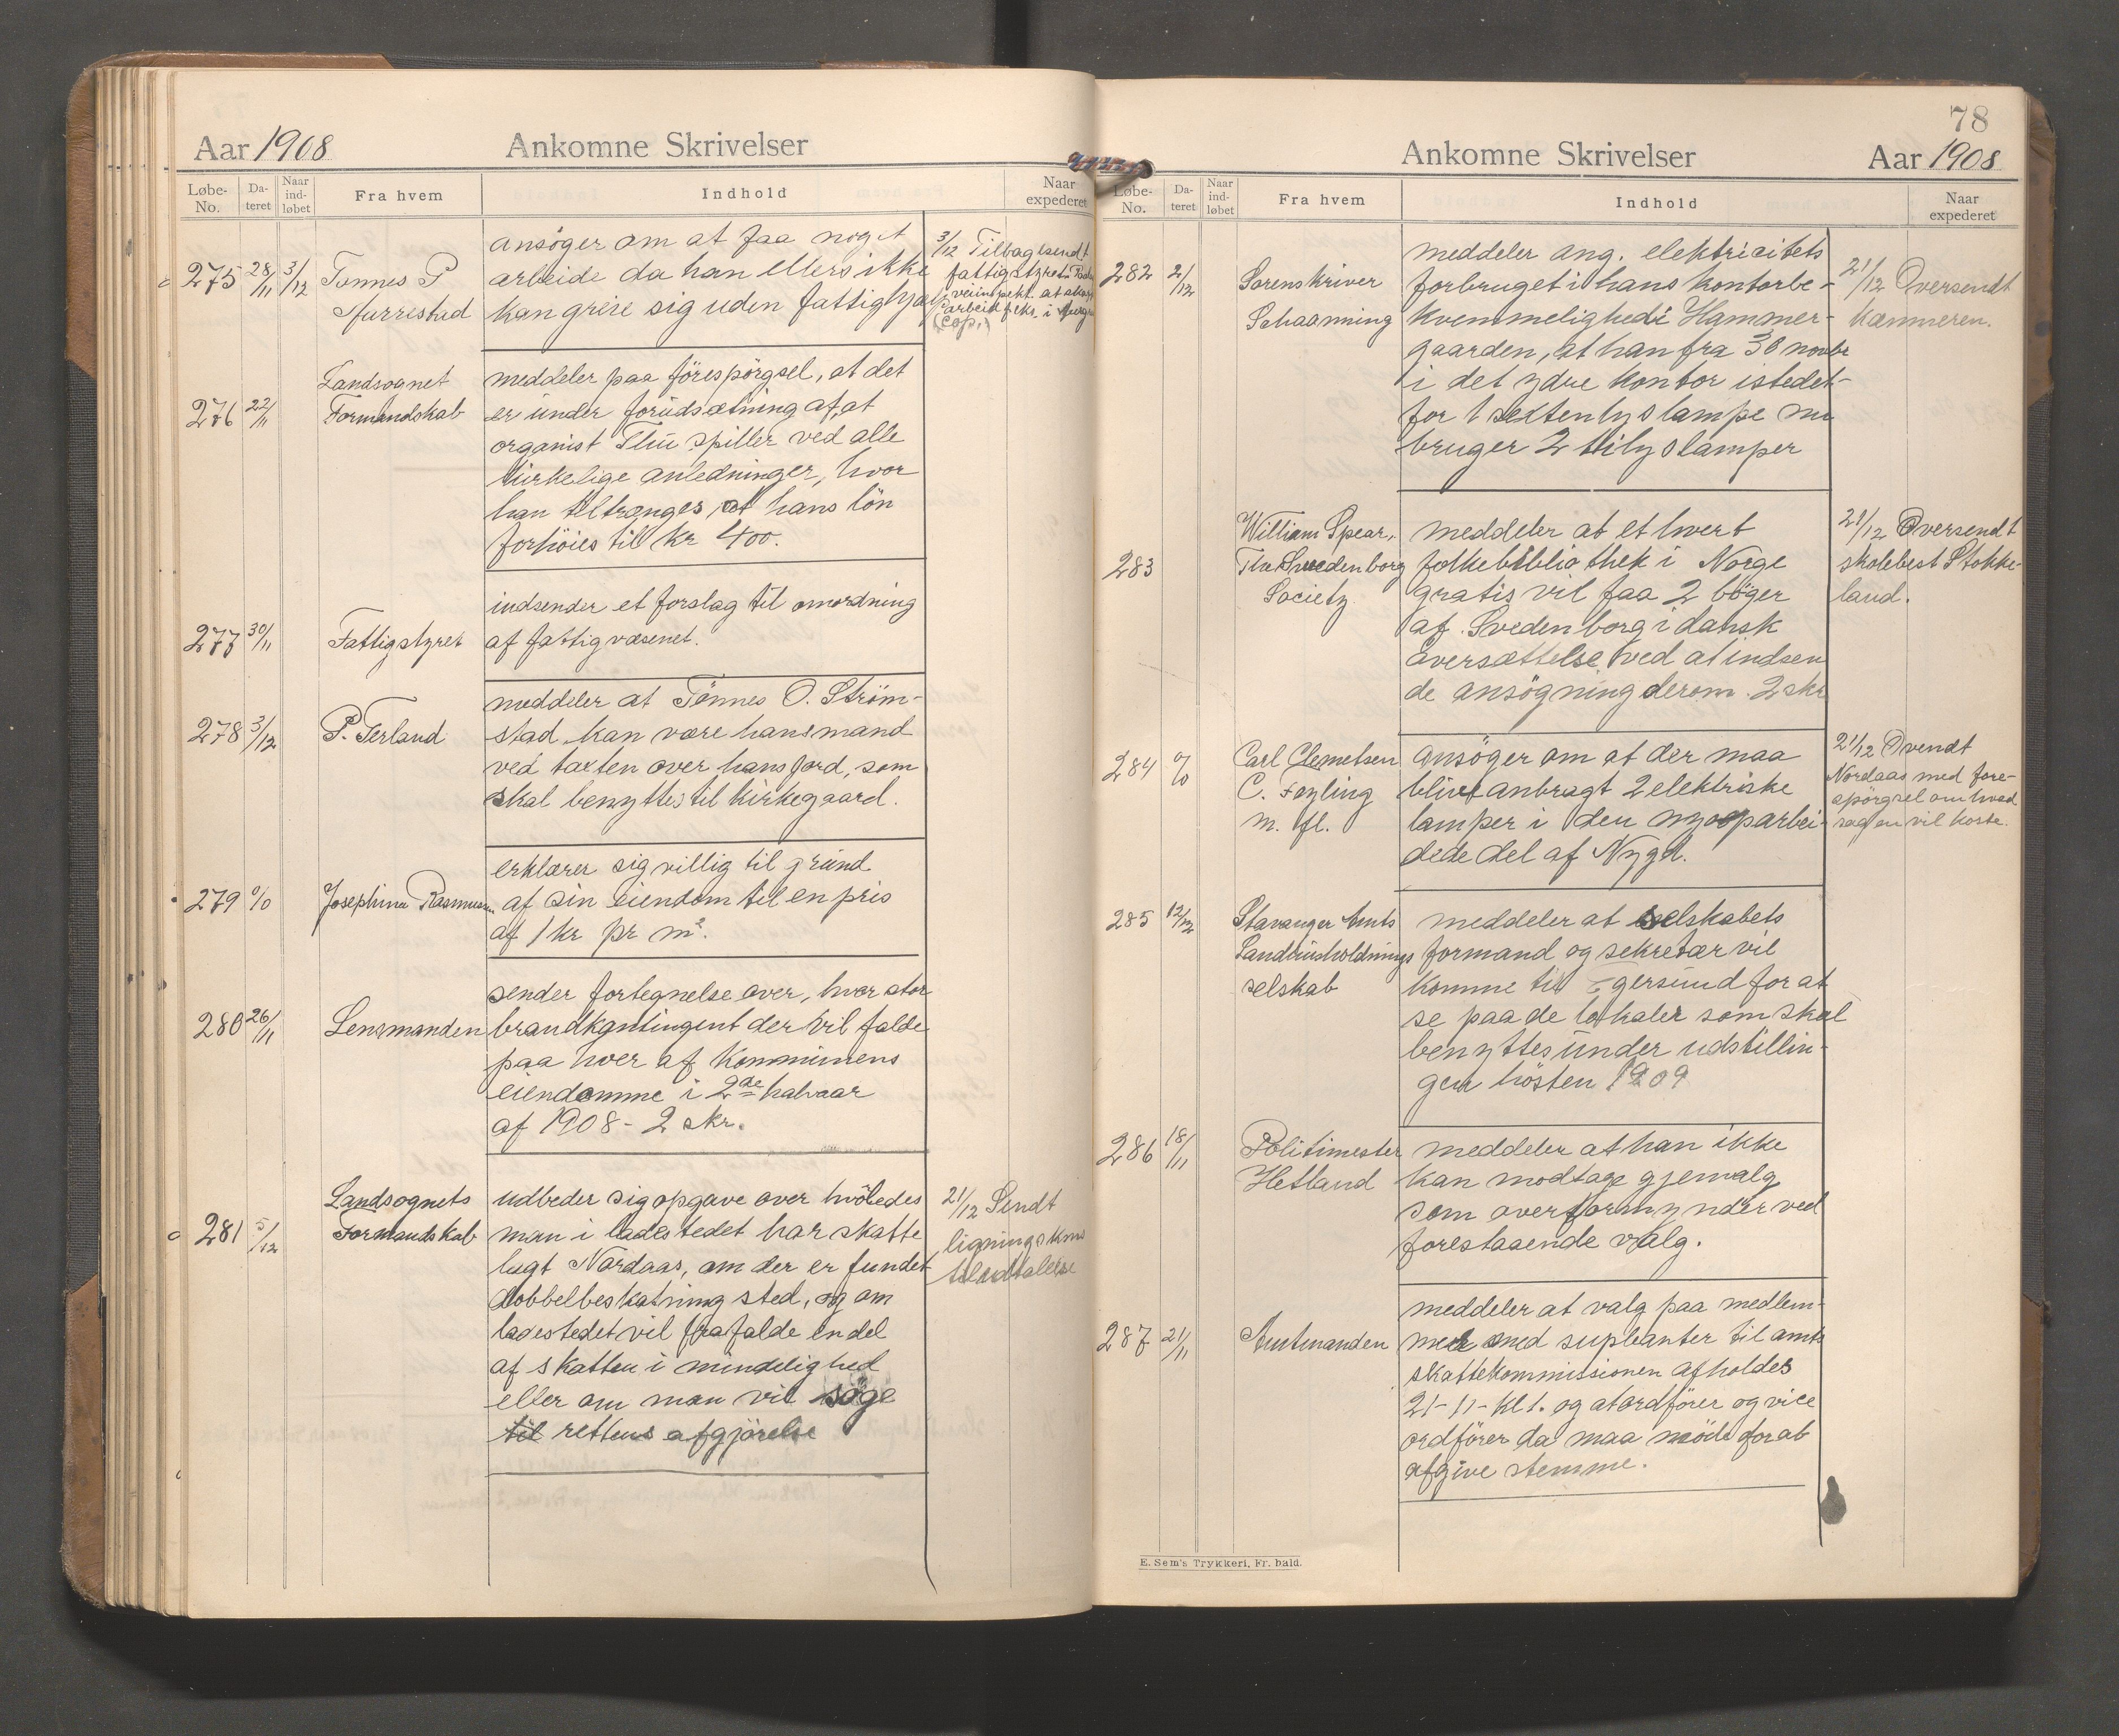 Aar 1908 Ankomne Skrivelser
Løbe-No. Dateret Naar indløbet Fra hvem Indhold Naar expederet
ansøger om at faa noget
275 28/11 3/12 Tønnes P arbeide da han ellers ikke
kan greie sig uden fattighjælp
3/12 Tilbagesendt
fattigstyret
veiinspekt. at
arbeide f.eks. i
(Cop.)
Landsognet meddeler paa förespörgsel, at det
276 22/11 Formandskab er under forudsætning af, at
organist Thu spiller ved alle
kirkelige anledninger, hvor
han tiltrænges, at hans lön
forhöies til kr 400.
indsender et forslag til omordning
277 30/11 Fattigstyret af fattigvæsenet.
meddeler at Tönnes O. Ström-
278 3/12 P. Terland stad kan være hansmand
ved taxten over hans jord, som
skal benyttes til kirkegaard.
erklærer sig villig til grund
279 0/0 Josephine Rasmussen af sin eiendom til en pris
af 1 kr pr m².
sender fortegnelse over, hvor stor
280 26/11 Lensmanden brandkontingent der vil falde
paa hver af kommunens
eiendomme i 2de halvaar
af 1908 - 2 skr.
Landsognets udbeder sig opgave over hvöledes
281 5/12 Formandskab man i ladestedet har skatte
lagt Nordaas, om der er fundet
dobbelbeskatning sted, og om
ladestedet vil frafalde en del
af skatten i mindelighed
eller om man vil söge
til rettens afgjörelse
21/12 Sendt
ligningskms
til udtalelse
78
Ankomne Skrivelser Aar 1908
Løbe-No. Dateret Naar indløbet Fra hvem Indhold Naar expederet
meddeler ang. elektricitets
282 2/12 Sorenskriver forbruget i hans kontorbe-
Schaanning kvemmelighed i Hammer-
gaarden, at han fra 30 novbr
i det ydre kontor istedet-
for 1 sextenlyslampe nu
bruger 2 tilyslamper
21/12 Oversendt
kæmneren.
William Spear, meddeler at et hvert
283 The Swedenborg folkebibliothek i Norge
Society gratis vil faa 2 böger
af Svedenborg i dansk
oversættelse ved at indsen
de ansögning derom. 2 skr
21/12 Oversendt
skolebest Stokke-
land.
Carl Clemetsen ansöger om at der maa
284 0/0 C. Feyling blive anbragt 2 elektriske
m. fl. lamper i den nyoparbei-
dede del af Nygd.
21/12 Ovendt
Nordaas med fore-
spörgsel om hvad
sagen vil koste.
285 12/12 Stavanger Amts meddeler at selskabets
Landhusholdnings formand og sekretær vil
selskab komme til Egersund for at
se paa de lokaler som skal
benyttes under udstillin-
gen hösten 1909
286 18/11 Politimester meddeler at han ikke
Hetland kan modtage gjenvalg
som overformynder ved
forestaaende valg.
meddeler at valg paa medlem-
287 21/11 Amtmanden mer med supleanter til amts
skattekommissionen afholdes
21-11- kl 1. og at ordförer og vice
ordförer da maa möde for at
afgive stemme.
E. Sem's Trykkeri, Fr. hald.